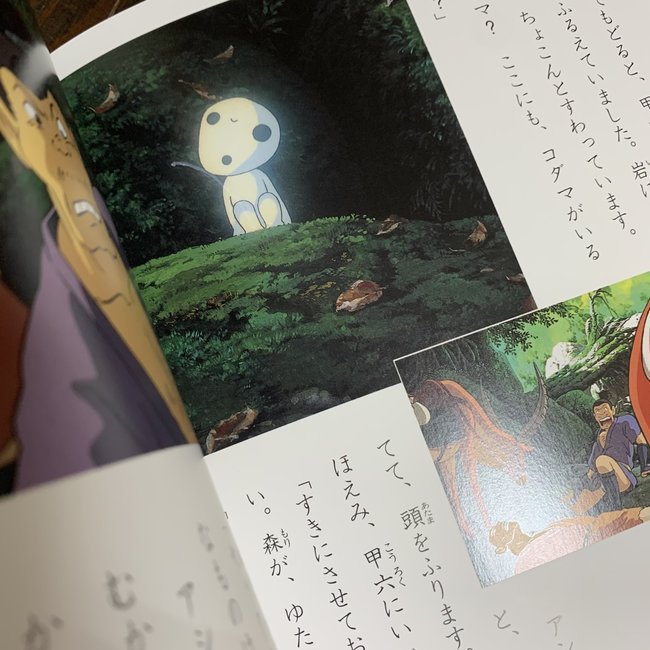 てもどると、甲
ふるえていました。岩に
ちょこんとすわっています。
マ？　ここにも、コダマがいる
？」
と、
てて、頭をふります。
あたま
ほえみ、甲六にい
こうろく
「すきにさせてお
い。森が、ゆた
もり
アシ
むか
か